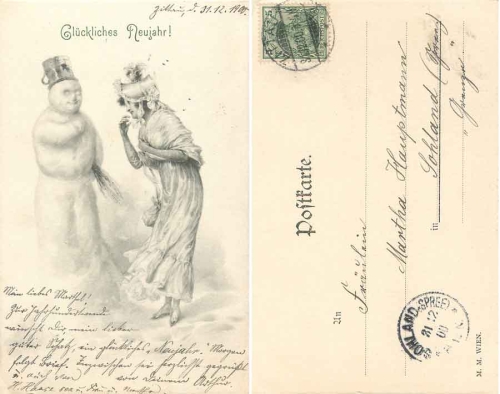 Zittau, d. 31.12.1900.
Glückliches Neujahr!
Mein liebes Martel!
Zur Jahrhundertwende
wünscht Dir, mein lieber
guter Schatz, ein glückliches „Neujahr." Morgen
folgt Brief. Inzwischen sei herzlichst gegrüßt
u. auch von deinem Arthur
Postkarte.
An
Fräulein
Martha Hauptmann
in Sohland (Spree)
SOHLAND (SPREE)
31 12 00
M. M. WIEN.